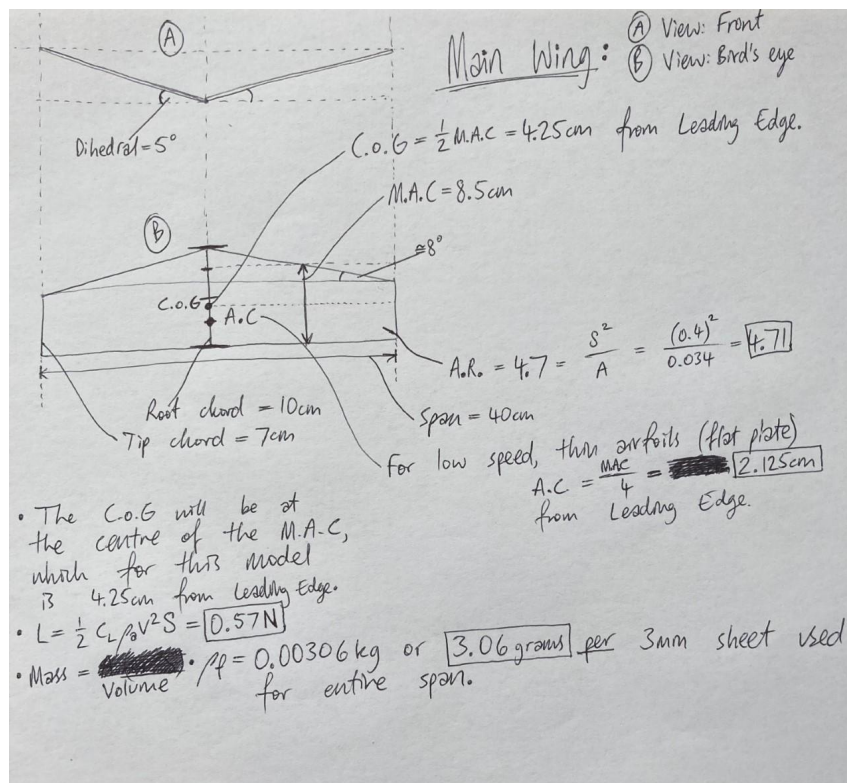 Ⓐ
Main Wing:
Ⓐ View: Front
Ⓑ View: Bird's eye
Dihedral=5°
C.o.G = ½ M.A.C = 4.25cm from Leading Edge.
M.A.C = 8.5cm
Ⓑ
≈8°
C.O.G
A.C
A.R. = 4.7 = S²/A = (0.4)²/0.034 = 4.71
Root chord = 10cm
Tip chord = 7cm
Span = 40cm
For low speed, thin airfoils (flat plate)
A.C = MAC/4 = 2.125cm
from Leading Edge.
• The C.o.G will be at
the centre of the M.A.C,
which for this model
is 4.25cm from Leading Edge.
• L = ½ CL ρa V² S = 0.57N
• Mass = Volume · ρf = 0.00306 kg or 3.06 grams per 3mm sheet used
for entire span.